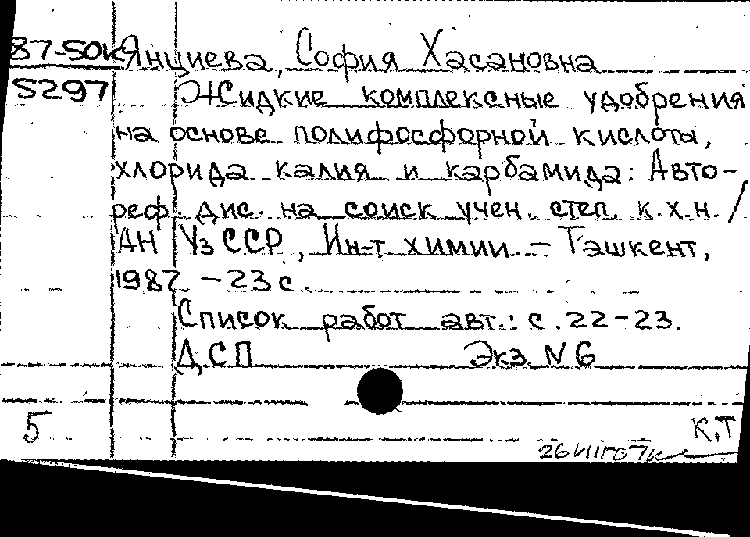 87-50к Янциева, София Хасановна
5297 Жидкие комплексные удобрения
на основе полифосфорной кислоты,
хлорида калия и карбамида: Авто-
реф. дис. на соиск учен. степ. к.х.н. /
АН УзССР, Ин-т химии. – Ташкент,
1987. – 23 с.
Список работ авт.: с. 22–23.
ДСП Экз. N 6
5 К.Т